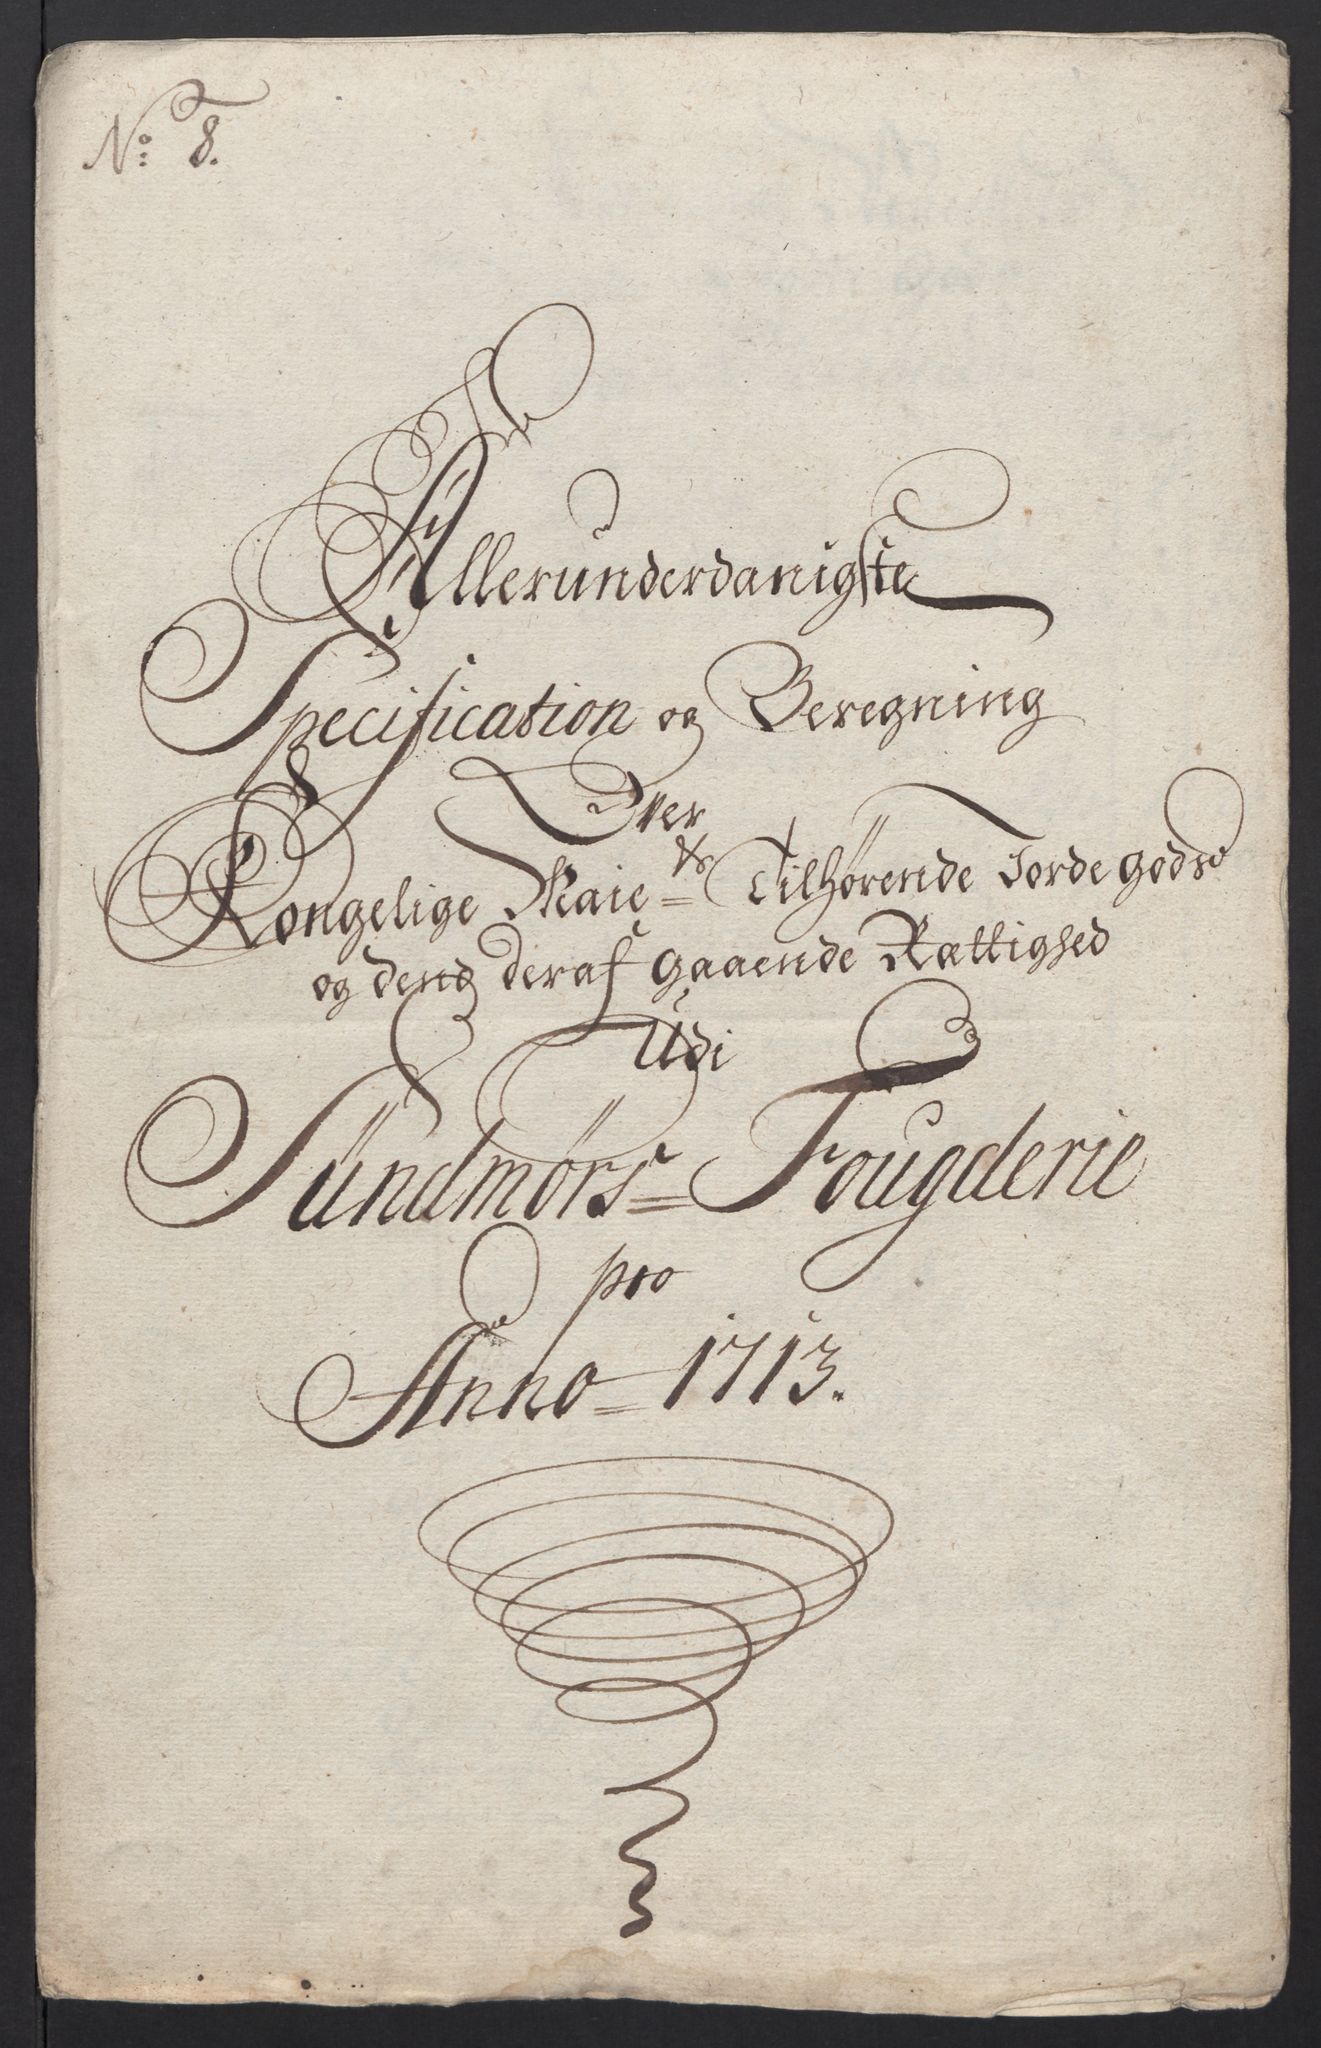 No: 8.
Allerunderdanigste
Specification og Beregning
Over
Kongelige Maie=ts Tilhørende Jordegods
og dens deraf gaaende Rættighed
Udi
Sündmørs= Fougderie
pro
Anno= 1713.